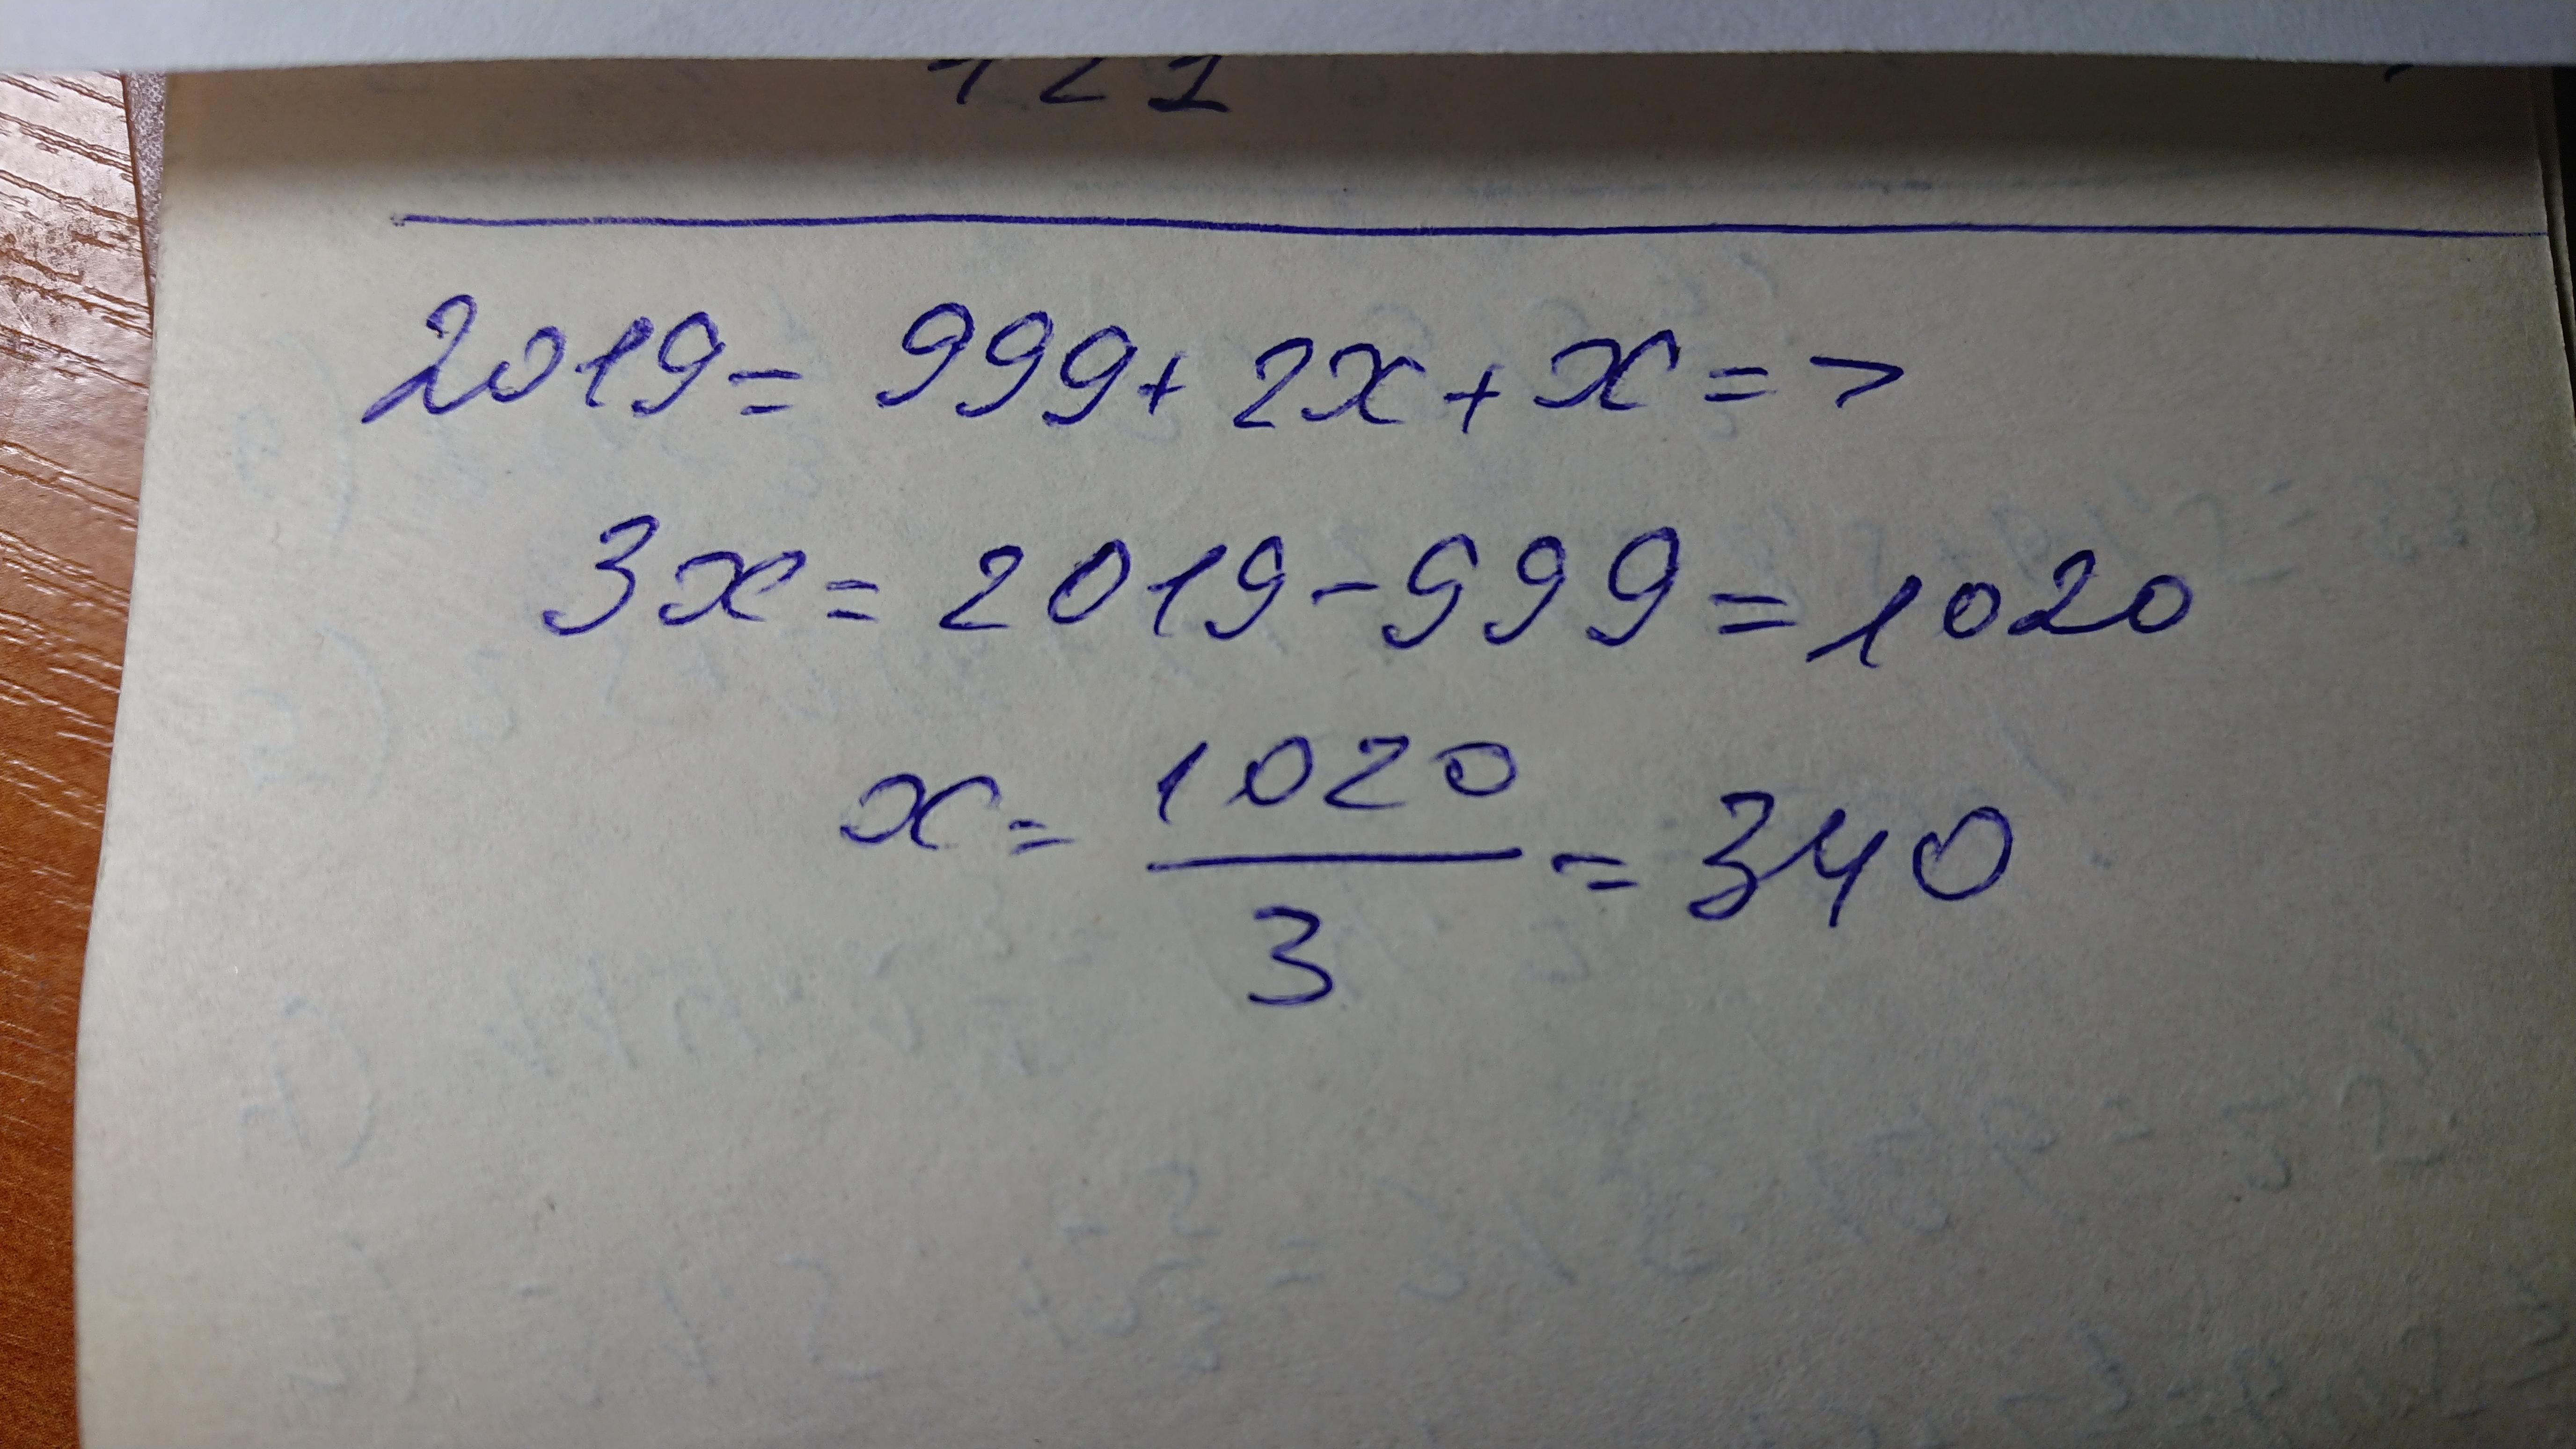 121
2019 = 999 + 2x + x =>
3x = 2019 - 999 = 1020
x = 1020/3 = 340